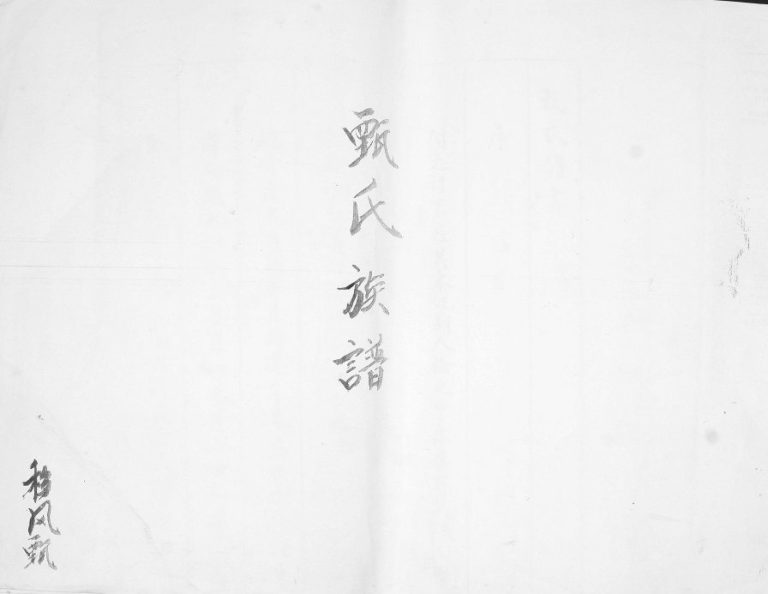 甄氏族譜
风甄